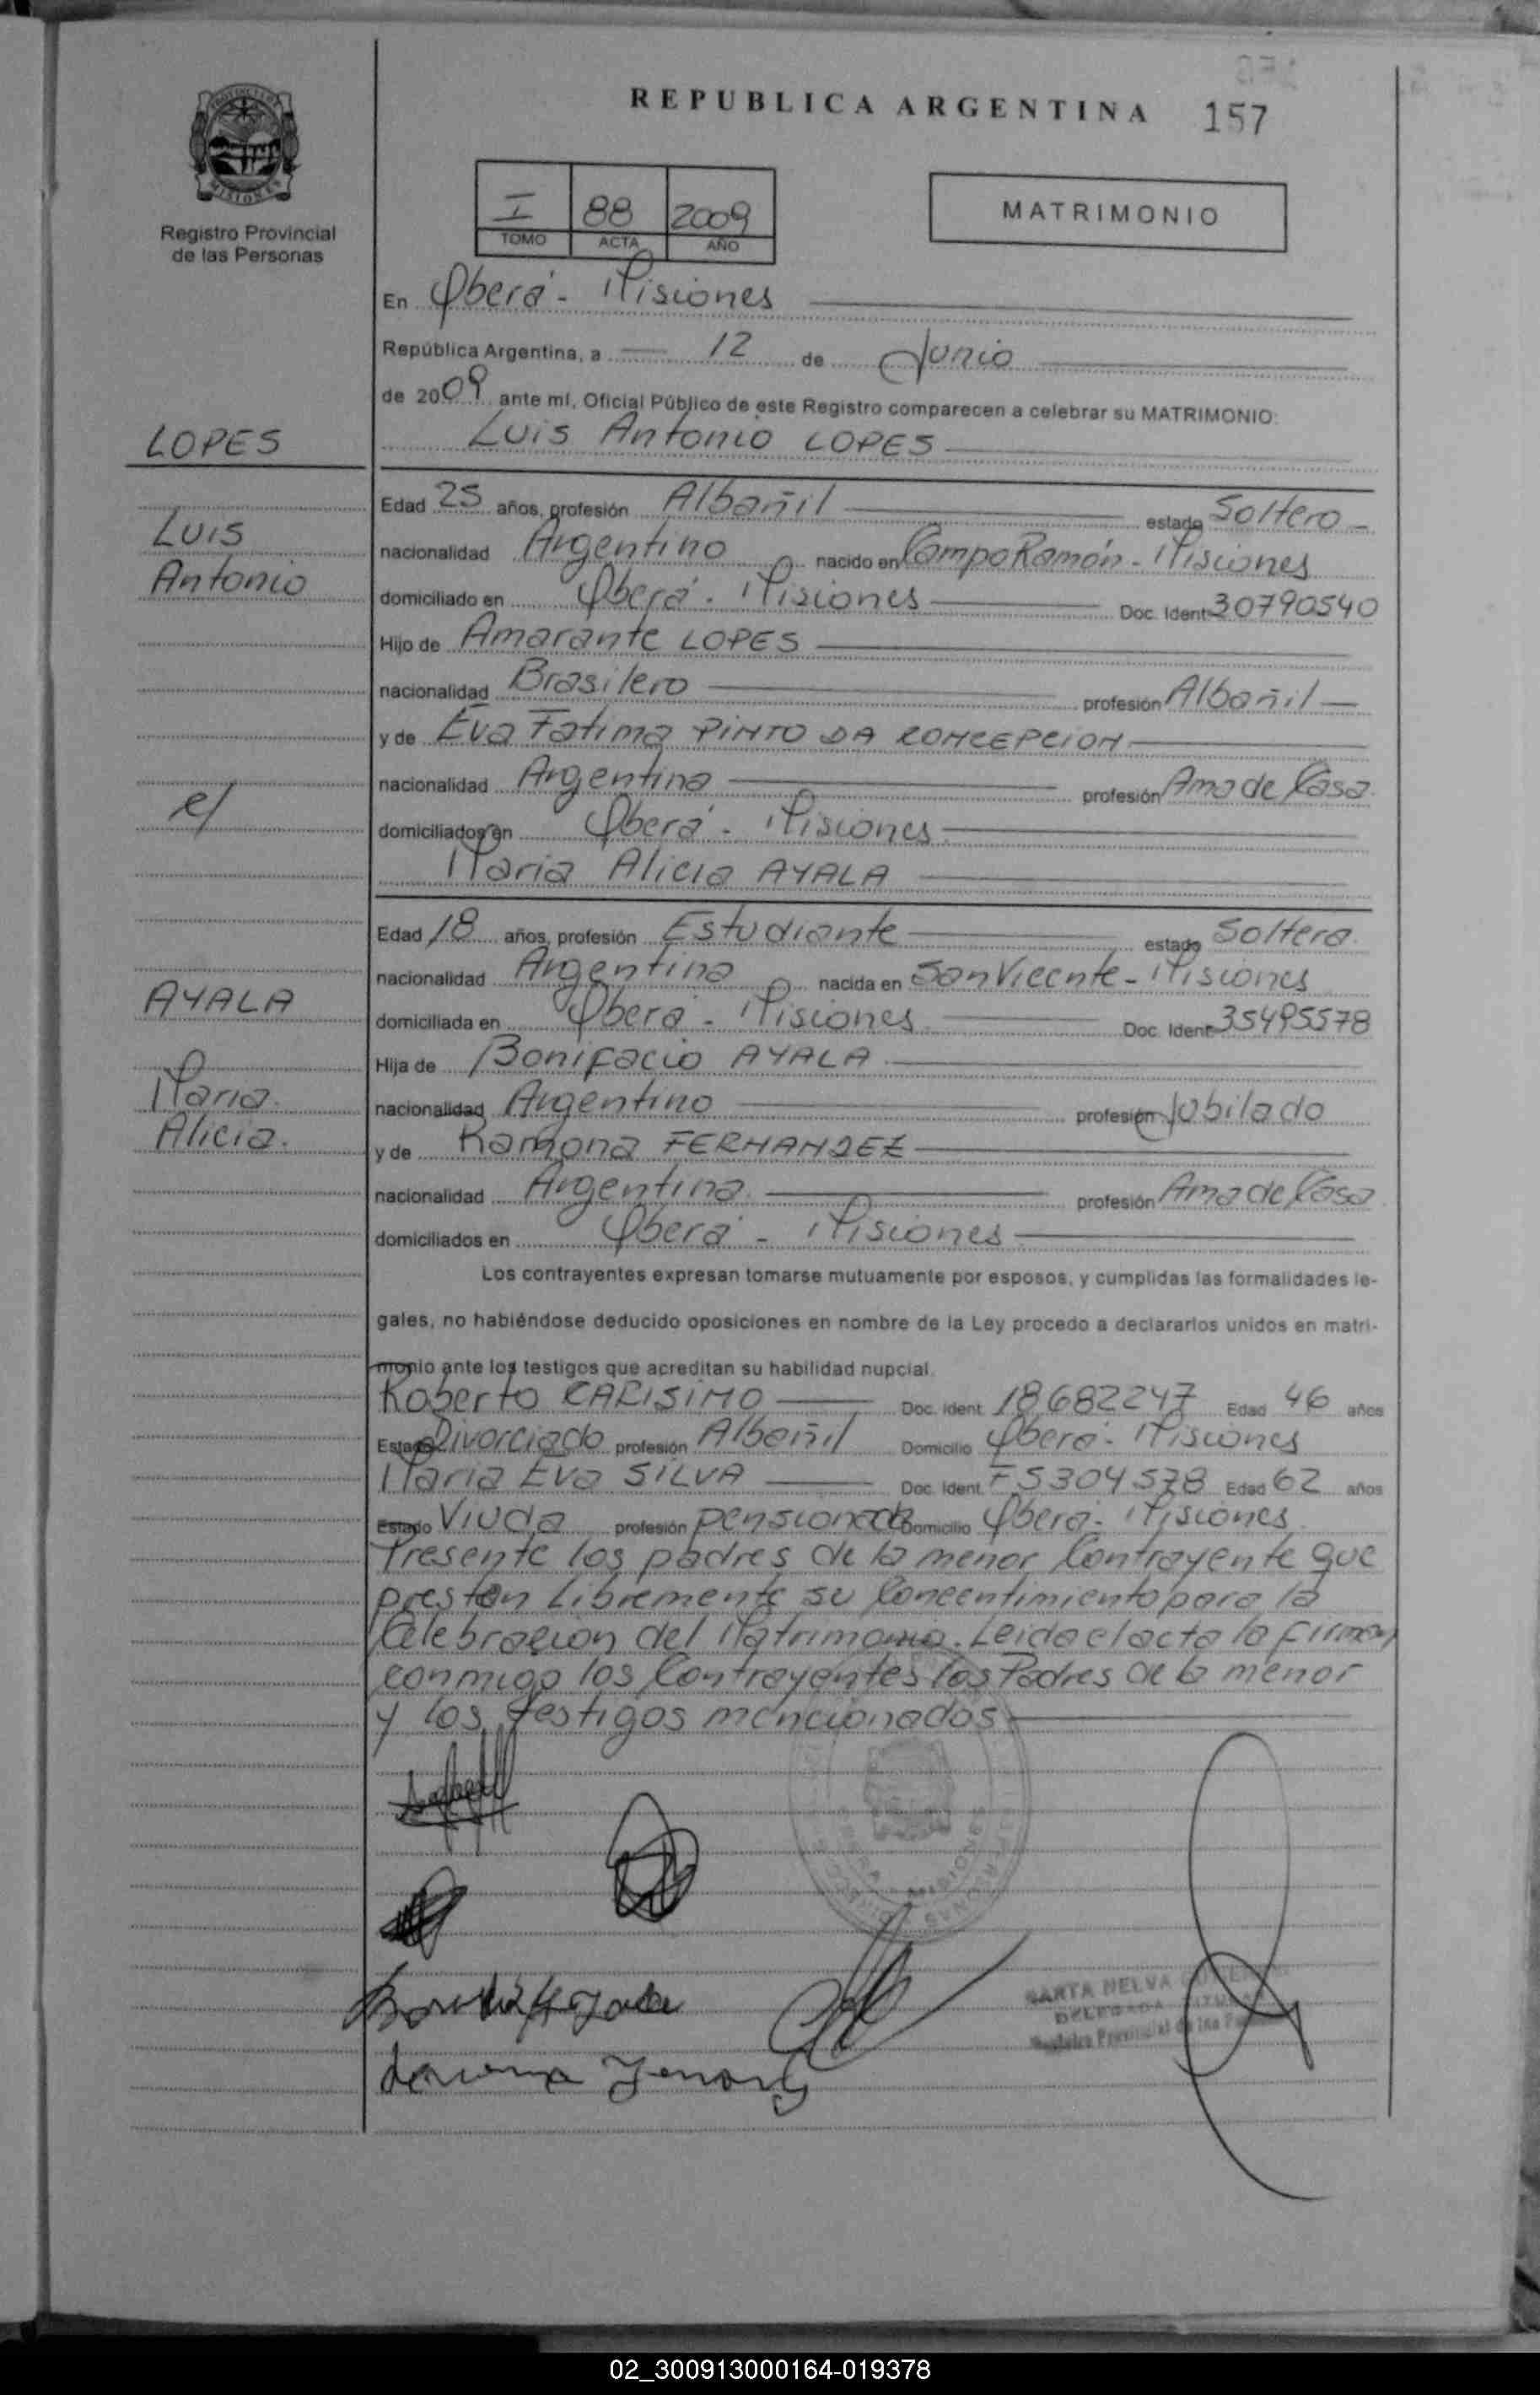 REPUBLICA ARGENTINA 157
MISIONES
Registro Provincial
de las Personas
I 88 2009
TOMO ACTA AÑO
MATRIMONIO
En Oberá - Misiones
República Argentina, a 12 de Junio
de 2009 ante mí, Oficial Público de este Registro comparecen a celebrar su MATRIMONIO:
LOPES
Luis Antonio LOPES
Edad 25 años, profesión Albañil estado Soltero
Luis
Antonio
nacionalidad Argentino nacido en Campo Ramón - Misiones
domiciliado en Oberá - Misiones Doc. Ident 30790540
Hijo de Amarante LOPES
nacionalidad Brasilero profesión Albañil
y de Eva Fatima PINTO DA CONCEPCION
nacionalidad Argentina profesión Ama de Casa
c/
domiciliados en Oberá - Misiones
Maria Alicia AYALA
Edad 18 años, profesión Estudiante estado Soltera
nacionalidad Argentina nacida en San Vicente - Misiones
AYALA
domiciliada en Oberá - Misiones Doc. Ident 35495578
Hija de Bonifacio AYALA
Maria
Alicia.
nacionalidad Argentino profesión Jubilado
y de Ramona FERNANDEZ
nacionalidad Argentina profesión Ama de Casa
domiciliados en Oberá - Misiones
Los contrayentes expresan tomarse mutuamente por esposos, y cumplidas las formalidades le-
gales, no habiéndose deducido oposiciones en nombre de la Ley procedo a declararlos unidos en matri-
monio ante los testigos que acreditan su habilidad nupcial.
Roberto CARISIMO Doc. Ident 18682247 Edad 46 años
Estado Divorciado profesión Albañil Domicilio Oberá - Misiones
Maria Eva SILVA Doc. Ident. F5304578 Edad 62 años
Estado Viuda profesión pensionada Domicilio Oberá - Misiones
Presente los padres de la menor Contrayente que
presten Libremente su Concentimiento para la
Celebracion del Matrimonio. Leida el acta la firman
conmigo los Contrayentes los Padres de la menor
y los testigos mencionados
MISIONES
NELVA
DELEGADA
Registro Provincial de las
02_300913000164-019378